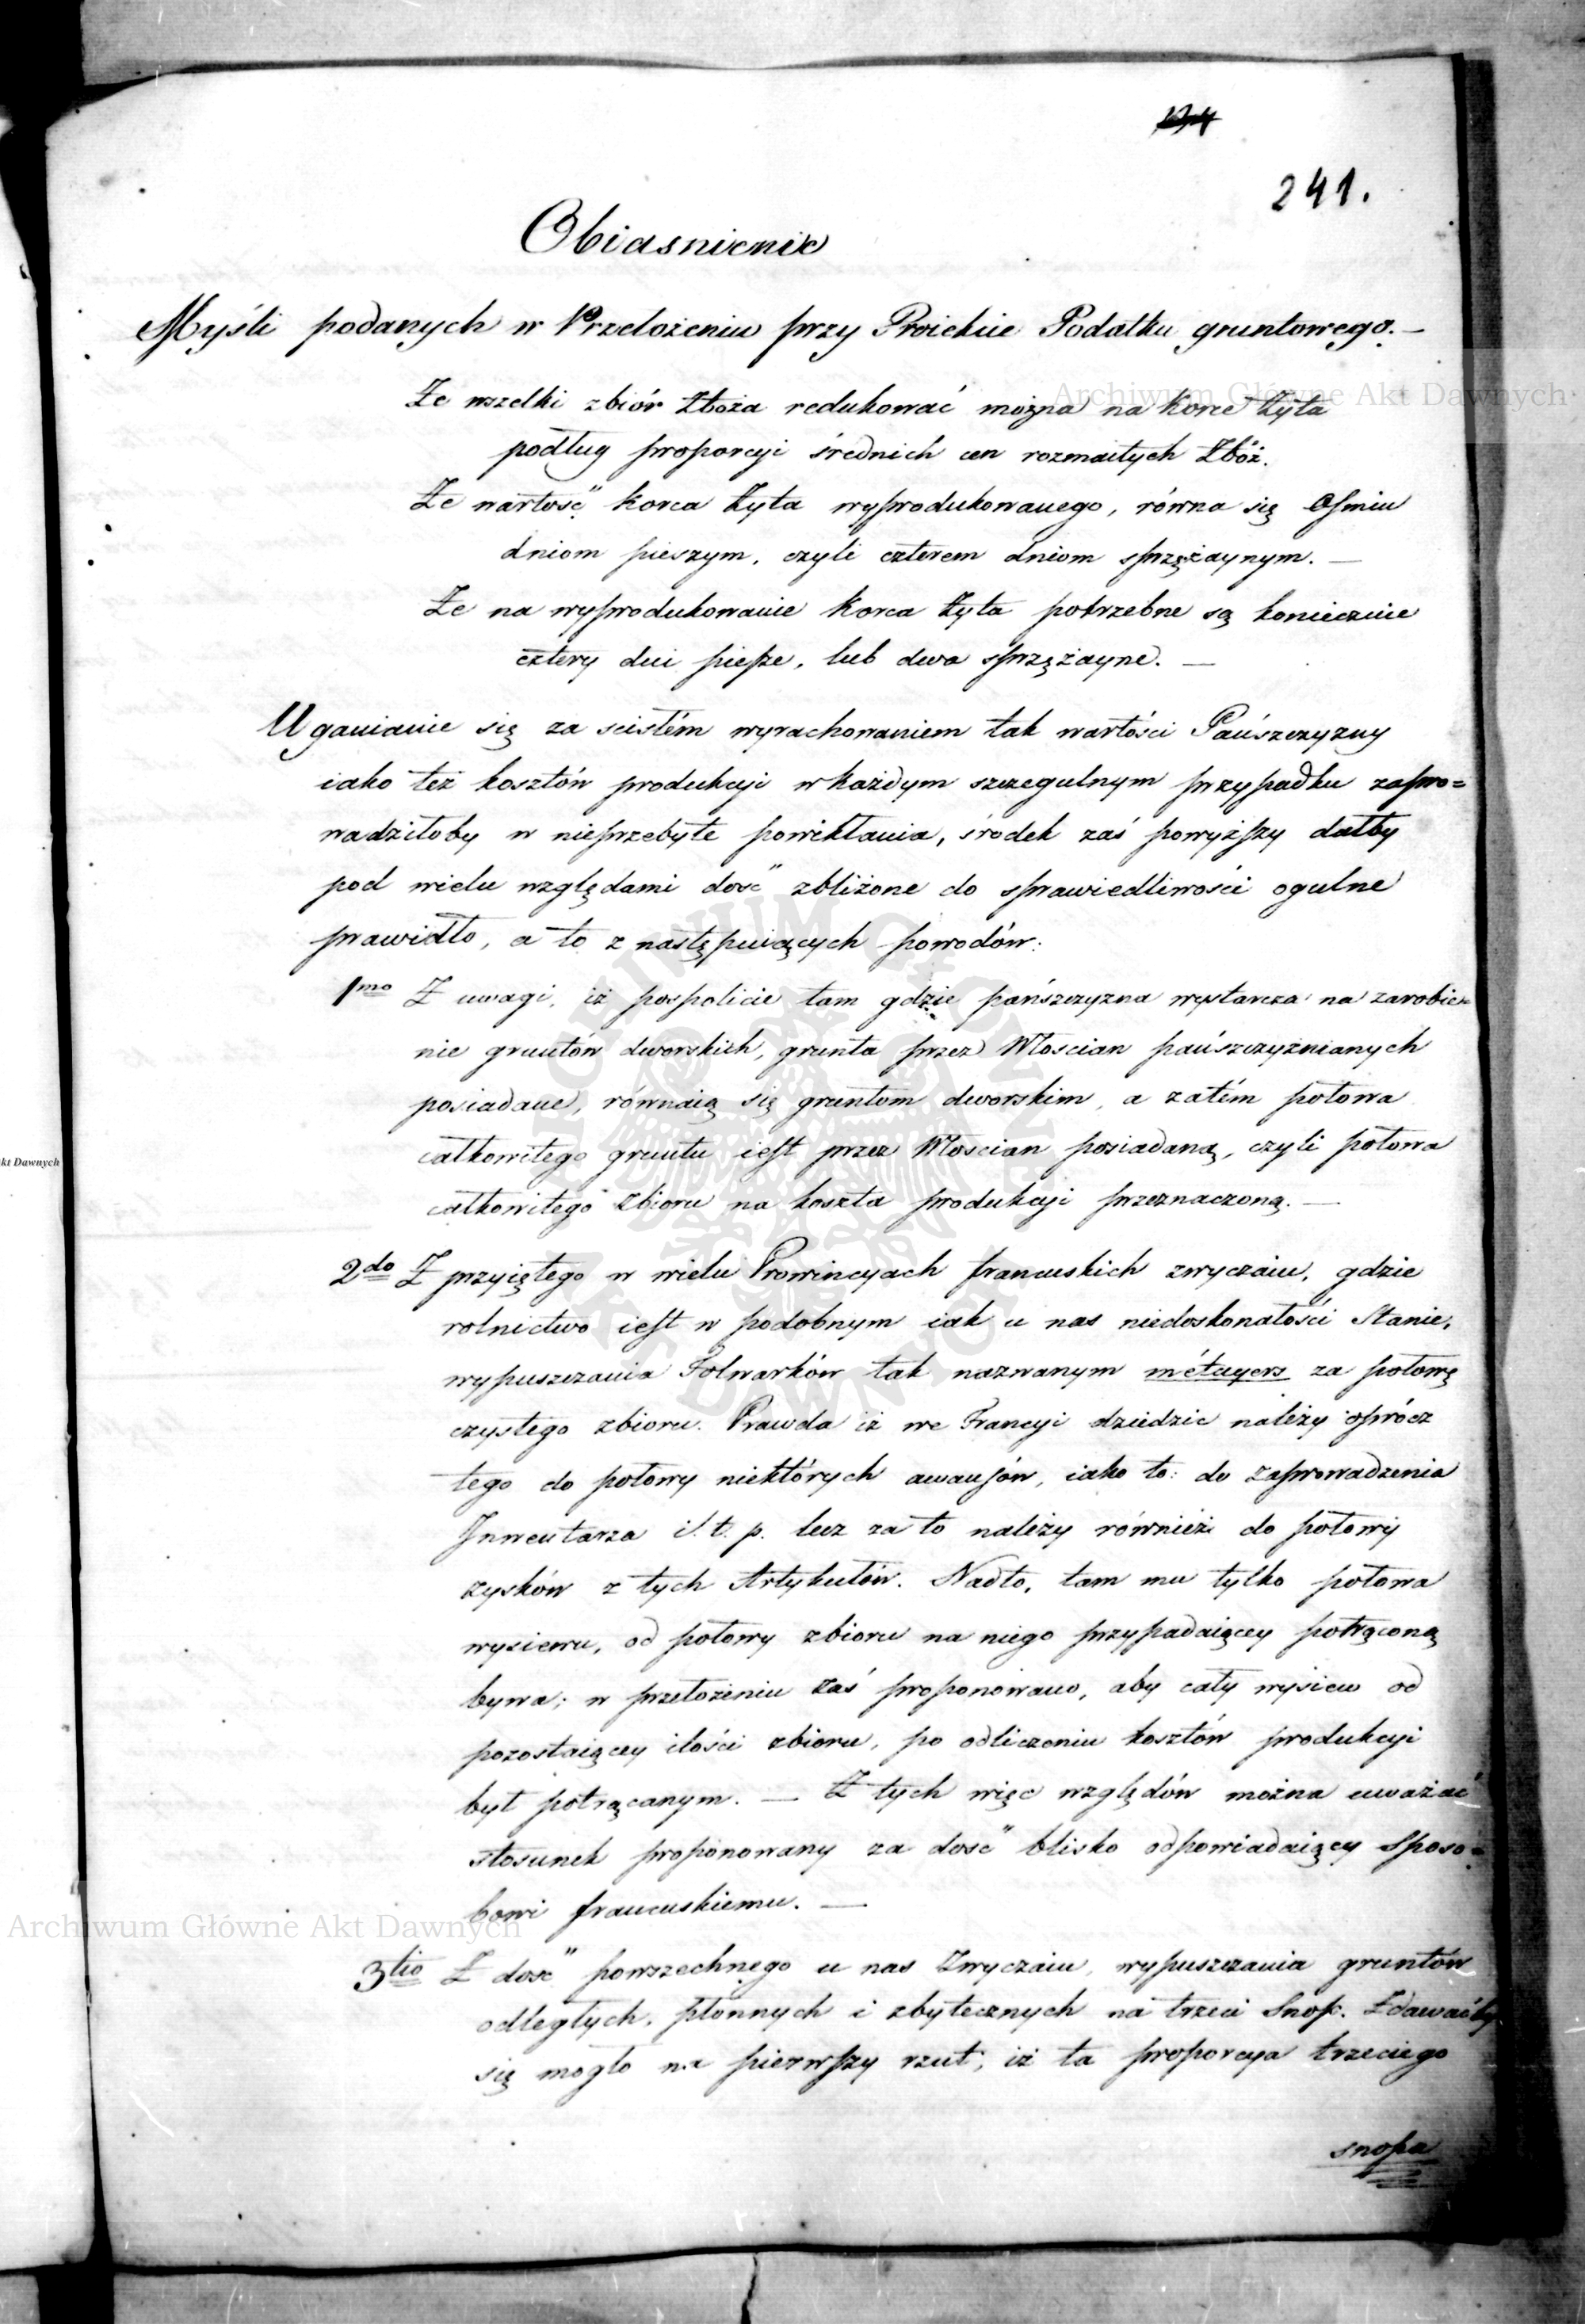 241.
Obiasnienie
Myśli podanych w Przełożeniu przy Proiekcie Podatku gruntowego. —
Że wszelki zbiór zboża redukować można na korce żyta
podług proporcyi średnich cen rozmaitych zbóż.
Że wartość korca żyta wyprodukowanego, równa się ośmiu
dniom pieszym, czyli czterem dniom sprzężaynym. —
Że na wyprodukowanie korca żyta potrzebne są koniecznie
cztery dni piesze, lub dwa sprzężayne. —
Uganianie się za scisłém wyrachowaniem tak wartości Pańszczyzny
iako też kosztów produkcyi w każdym szczegulnym przypadku zapro=
wadziłoby w nieprzebyte powikłania, środek zaś powyższy dałby
pod wielu względami dość zbliżone do sprawiedliwości ogulne
prawidło, a to z następuiących powodów:
1mo Z uwagi, iż pospolicie tam gdzie pańszczyzna wystarcza na zarobie=
nie gruntów dworskich, grunta przez Włoscian pańszczyźnianych
posiadane, równaią się gruntom dworskim, a zatém połowa
całkowitego gruntu iest przez Włoscian posiadaną, czyli połowa
całkowitego zbioru na koszta produkcyi przeznaczoną. —
2do Z przyiętego w wielu Prowincyach francuskich zwyczaiu, gdzie
rolnictwo iest w podobnym iak u nas niedoskonałości Stanie,
wypuszczania Folwarków tak nazwanym métayers za połowę
czystego zbioru. Prawda iż we Francyi dziedzic należy oprócz
tego do połowy niektórych awansów, iako to: do zaprowadzenia
Inwentarza i t. p. lecz za to należy również do połowy
zysków z tych Artykułów. Nadto, tam mu tylko połowa
wysiewu, od połowy zbioru na niego przypadaiącey potrąconą
bywa; w przełożeniu zaś proponowano, aby cały wysiew od
pozostaiącey ilości zbioru, po odliczeniu kosztów produkcyi
był potrącanym. — Z tych więc względów można uważać
stosunek proponowany za dość blisko odpowiadaiący sposo=
bowi francuskiemu. —
3tio Z dość powszechnego u nas zwyczaiu, wypuszczania gruntów
odległych, płonnych i zbytecznych na trzeci Snop. Zdawaćby
się mogło na pierwszy rzut, iż ta proporcya trzeciego
snopa
Archiwum Główne Akt Dawnych
kt Dawnych
ARCHIWUM GŁÓWNE AKT DAWNYCH
Archiwum Główne Akt Dawnych